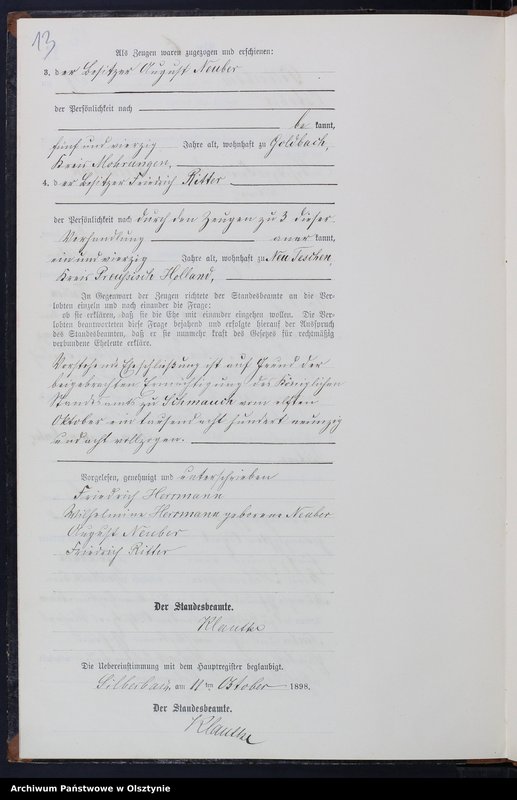 13
Als Zeugen waren zugezogen und erschienen:
3. der Besitzer August Neuber
der Persönlichkeit nach
be kannt,
fünf und vierzig Jahre alt, wohnhaft zu Goldbach,
Kreis Mohrungen,
4. der Besitzer Friedrich Ritter
der Persönlichkeit nach durch den Zeugen zu 3 dieser
Verhandlung aner kannt,
ein und vierzig Jahre alt, wohnhaft zu Neu Teschen,
Kreis Preußisch Holland,
In Gegenwart der Zeugen richtete der Standesbeamte an die Ver-
lobten einzeln und nach einander die Frage:
ob sie erklären, daß sie die Ehe mit einander eingehen wollen. Die Ver-
lobten beantworteten diese Frage bejahend und erfolgte hierauf der Ausspruch
des Standesbeamten, daß er sie nunmehr kraft des Gesetzes für rechtmäßig
verbundene Eheleute erkläre.
Vorstehende Eheschließung ist auf Grund der
beigebrachten Ermächtigung des Königlichen
Standesamts zu Schmauch vom elften
Oktober ein tausend acht hundert neunzig
und acht vollzogen.
Vorgelesen, genehmigt und unterschrieben
Friedrich Herrmann
Wilhelmine Herrmann geborene Neuber
August Neuber
Friedrich Ritter
Der Standesbeamte.
Klautke
Die Uebereinstimmung mit dem Hauptregister beglaubigt.
Silberbach, am 11ten Oktober 1898.
Der Standesbeamte.
Klautke
Archiwum Państwowe w Olsztynie